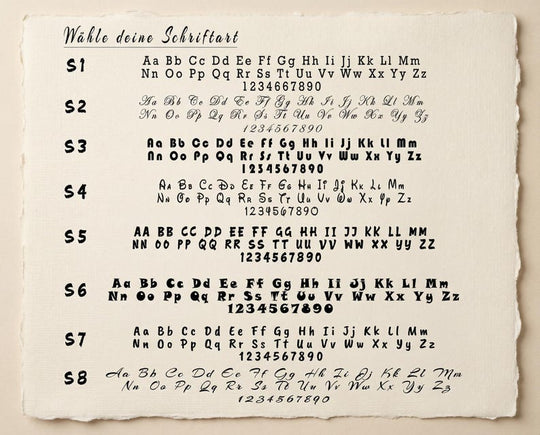 Wähle deine Schriftart
S1
Aa Bb Cc Dd Ee Ff Gg Hh Ii Jj Kk Ll Mm
Nn Oo Pp Qq Rr Ss Tt Uu Vv Ww Xx Yy Zz
1234667890
S2
Aa Bb Cc Dd Ee Ff Gg Hh Ii Jj Kk Ll Mm
Nn Oo Pp Qq Rr Ss Tt Uu Vv Ww Xx Yy Zz
1234567890
S3
Aa Bb Cc Dd Ee Ff Gg Hh Ii Jj Kk Ll Mm
Nn Oo Pp Qq Rr Ss Tt Uu Vv Ww Xx Yy Zz
1234567890
S4
Aa Bb Cc Dd Ee Ff Gg Hh Ii Jj Kk Ll Mm
Nn Oo Pp Qq Rr Ss Tt Uu Vv Ww Xx Yy Zz
1234567890
S5
AA BB CC DD EE FF GG HH II JJ KK LL MM
NN OO PP QQ RR SS TT UU VV WW XX YY ZZ
1234567890
S6
Aa Bb Cc Dd Ee Ff Gg Hh Ii Jj Kk Ll Mm
Nn Oo Pp Qq Rr Ss Tt Uu Vv Ww Xx Yy Zz
1234567890
S7
Aa Bb Cc Dd Ee Ff Gg Hh Ii Jj Kk Ll Mm
Nn Oo Pp Qq Rr Ss Tt Uu Vv Ww Xx Yy Zz
1234567890
S8
Aa Bb Cc Dd Ee Ff Gg Hh Ii Jj Kk Ll Mm
Nn Oo Pp Qq Rr Ss Tt Uu Vv Ww Xx Yy Zz
1234567890